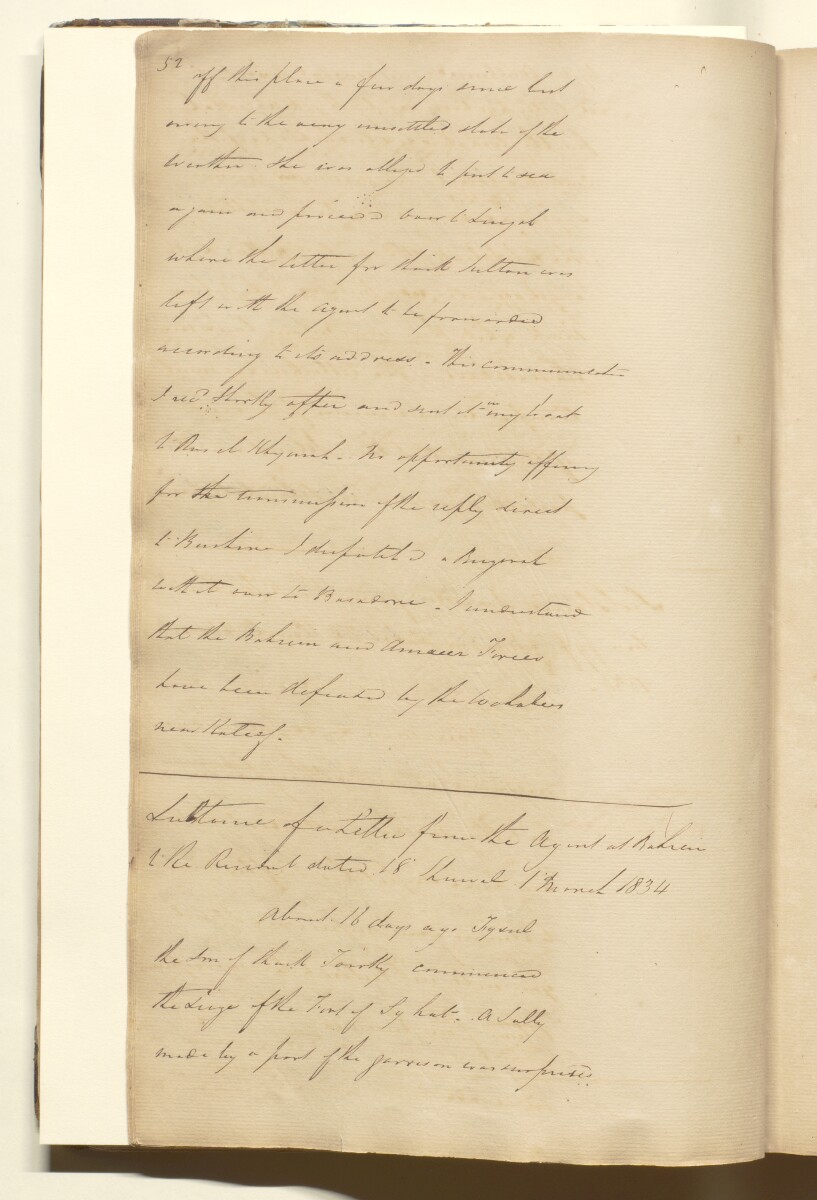 52
off this place a few days since but
owing to the very unsettled state of the
weather she was obliged to put to sea
again and proceed over to Lingah
where the letter for Shaik Sultan was
left with the Agent to be forwarded
according to its address. This communicatn
I recd. shortly after and sent it in my boat
to Ras el Khymah. No opportunity offering
for the transmission of the reply direct
to Bushire I dispatched a Bugerah
with it over to Bassadore. I understand
that the Bahrein and Amaeer Forces
have been defeated by the Wahabees
near Kateef.
Substance of a Letter from the Agent at Bahrein
to the Resident dated 18 Shuwal 1 March 1834
About 16 days ago Fysul
the Son of Shaik Toorky commenced
the Siege of the Fort of Syhat. A Sally
made by a part of the garrison was surprised